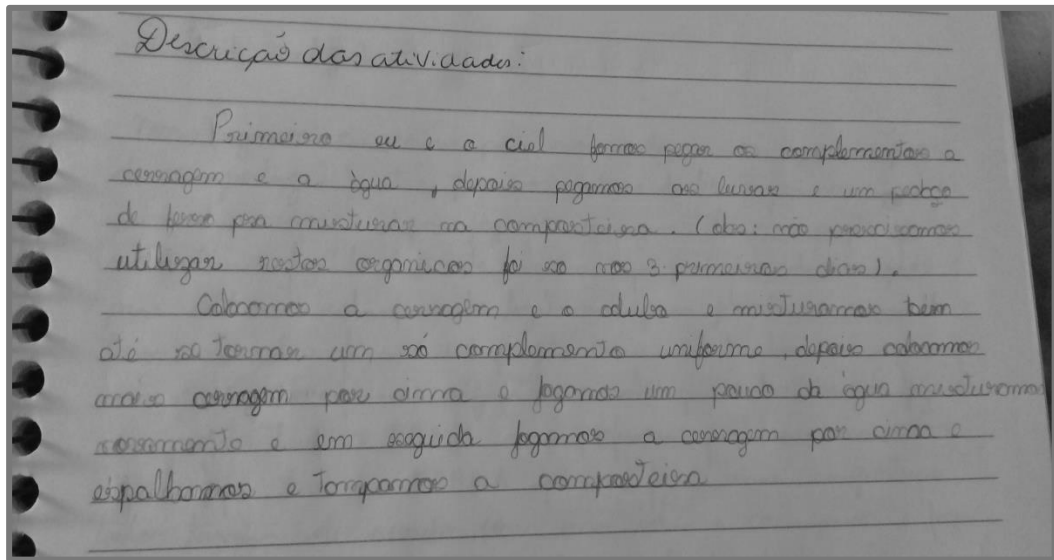 Descrição das atividades:
Primeiro eu e o ciel fomos pegar os complementos a
cerragem e a àgua, depois pegamos as luvas e um pedaço
de ferro pra misturar na composteira. (obs: não precisamos
utilizar restos organicos foi so nos 3 primeiros dias).
Colocamos a cerragem e o adubo e misturamos bem
até se tornar um só complemento uniforme, depois colocamos
mais cerragem por cima e jogamos um pouco da àgua misturamos
novamente e em seguida jogamos a cerragem por cima e
espalhamos e tampamos a composteira